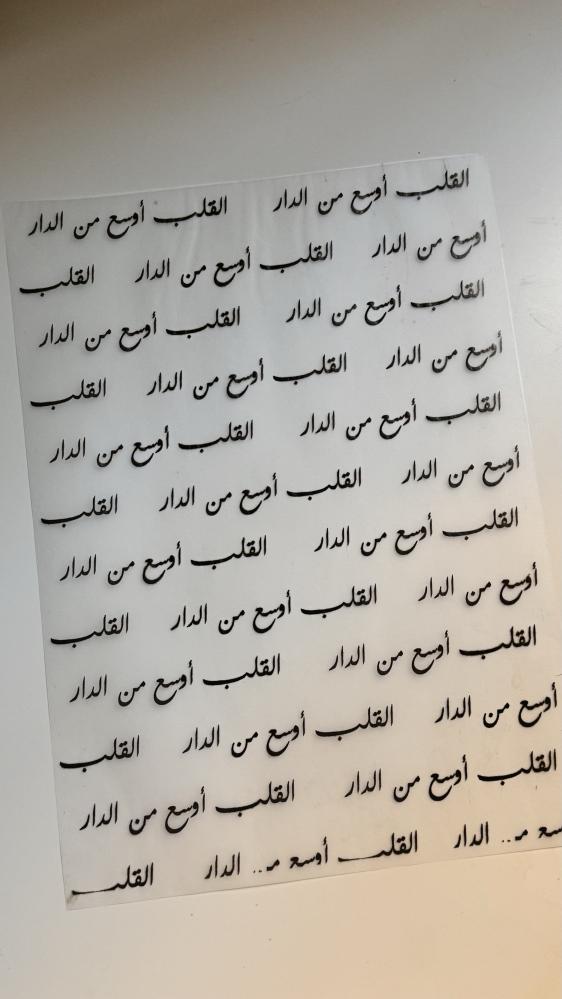 القلب أوسع من الدار القلب أوسع من الدار
أوسع من الدار القلب أوسع من الدار القلب
القلب أوسع من الدار القلب أوسع من الدار
أوسع من الدار القلب أوسع من الدار القلب
القلب أوسع من الدار القلب أوسع من الدار
أوسع من الدار القلب أوسع من الدار القلب
القلب أوسع من الدار القلب أوسع من الدار
أوسع من الدار القلب أوسع من الدار القلب
القلب أوسع من الدار القلب أوسع من الدار
أوسع من الدار القلب أوسع من الدار القلب
القلب أوسع من الدار القلب أوسع من الدار
الدار القلب أوسع الدار القلب